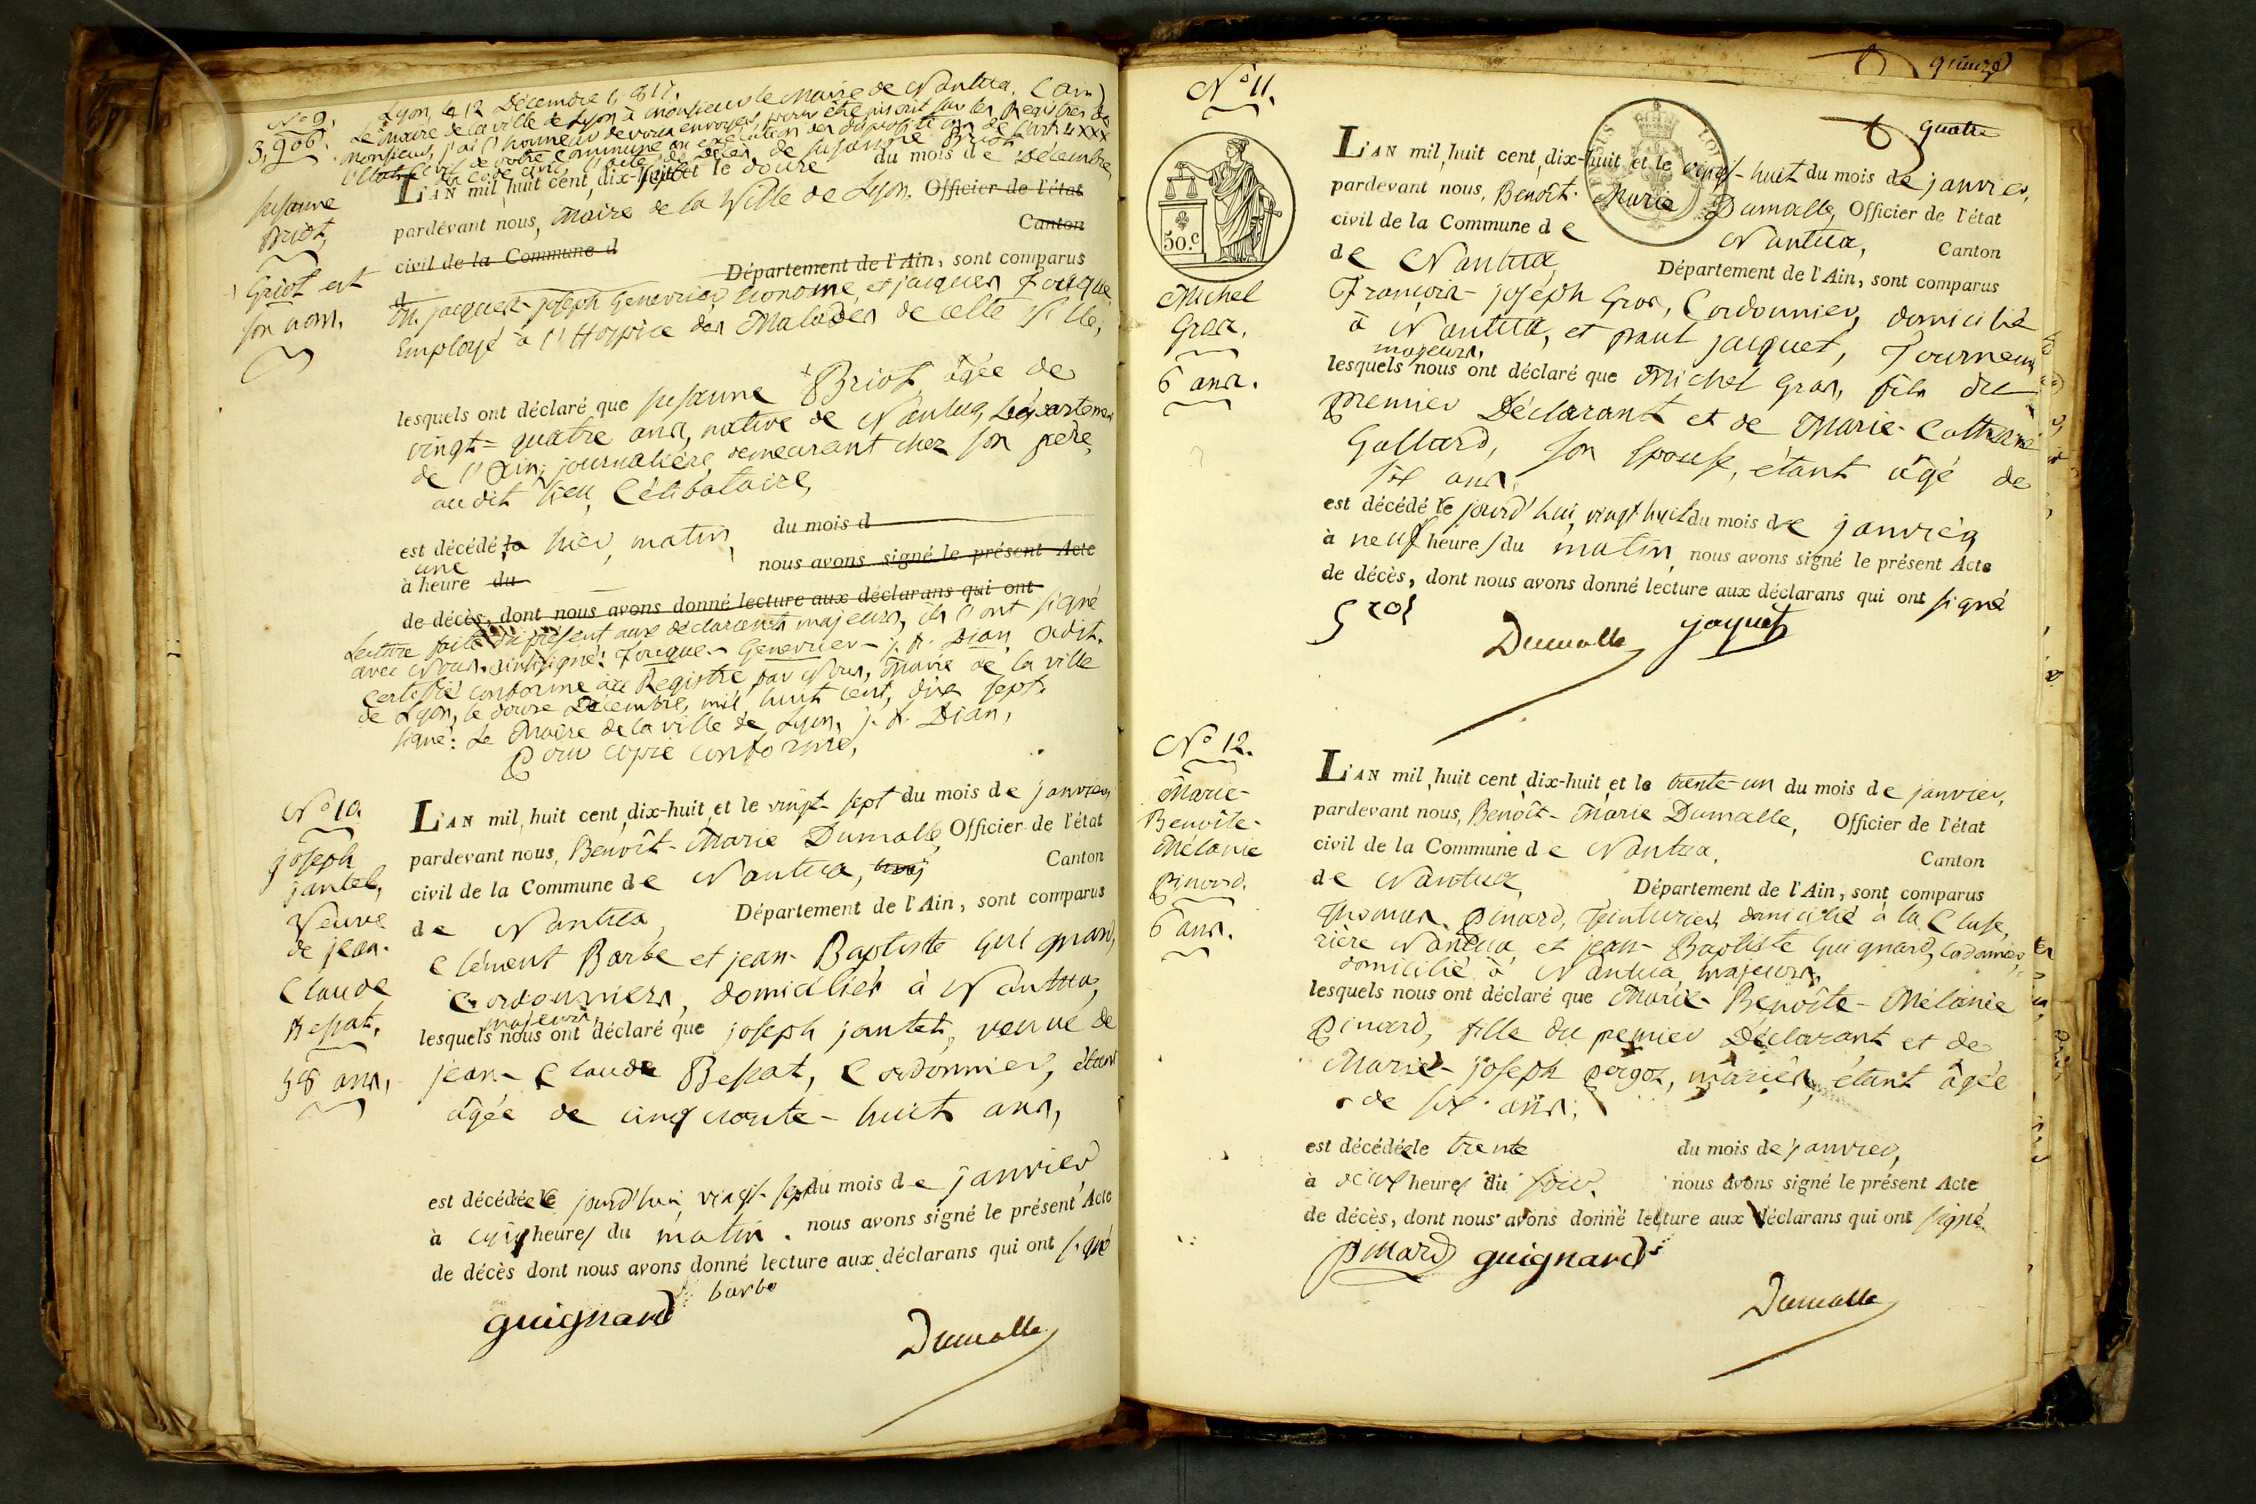 N.º 9.
3,906.
Susanne
Briot,
Griot est
son nom.
Lyon, le 12 Décembre 1,817.
Le Maire de la ville de Lyon à Monsieur le Maire de Nantua. (Ain)
Monsieur, j'ai l'honneur de vous envoyer, pour être inscrit sur les Registres de
l'État civil de votre Commune en exécution des dispositions de l'art. LXXX
du Code civil l'acte de décès de Susanne Briot
L'AN mil huit cent dix-sept et le douze du mois de Décembre
pardevant nous, Maire de la Ville de Lyon. Officier de l'état
civil de la Commune d Canton
d Département de l'Ain, sont comparus
M. jacques-joseph Genevrier, Econome, et jacques Fouque
Employé à l'Hospice des Malades de cette Ville,
lesquels ont déclaré que Susanne Briot, âgée de
vingt-quatre ans, native de Nantua, Département
de l'Ain, journalière, demeurant chez son père,
audit lieu, Célibataire,
est décédé la hier, matin, du mois d
à une heure du nous avons signé le présent Acte
de décès, dont nous avons donné lecture aux déclarans qui ont
Lecture faite du présent aux déclarants majeurs, ils l'ont signé
avec Nous. Signé: Fouque - Genevrier - j. Dian, Adjt.
Certifié conforme au Registre par Nous, Maire de la ville
de Lyon, le douze Décembre, mil huit cent, dix sept.
signé: Le Maire de la ville de Lyon, j. Dian,
Pour copie conforme,
N.º 10.
joseph
jantet,
Veuve
de jean-
Claude
Bessat,
58 ans,
L'AN mil huit cent dix-huit et le vingt-sept du mois de janvier
pardevant nous, Benoît-Marie Dumalle, Officier de l'état
civil de la Commune de Nantua, Canton
de Nantua, Département de l'Ain, sont comparus
Clément Barbe et jean-Baptiste Guignard,
Cordonniers, domiciliés à Nantua,
majeurs,
lesquels nous ont déclaré que joseph jantet, veuve de
jean-Claude Bessat, Cordonnier, étant
âgée de cinquante-huit ans,
est décédée le jourd'hui vingt-sept du mois de janvier
à cinq heures du matin. nous avons signé le présent Acte
de décès dont nous avons donné lecture aux déclarans qui ont signé
guignard barbe
Dumalle
quinze
quatre
N.º 11.
50.c
Michel
Gros.
6 ans.
L'AN mil huit cent dix-huit et le vingt-huit du mois de janvier,
pardevant nous, Benoît-Marie Dumalle, Officier de l'état
civil de la Commune de Nantua, Canton
de Nantua, Département de l'Ain, sont comparus
François-joseph Gros, Cordonnier, domicilié
à Nantua, et paul jacquet, Tourneur
majeurs,
lesquels nous ont déclaré que Michel Gros, fils du
premier Déclarant et de Marie-Catherine
Gallard, son Epouse, étant âgé de
six ans,
est décédé le jourd'hui vingt huit du mois de janvier
à neuf heures du matin, nous avons signé le présent Acte
de décès, dont nous avons donné lecture aux déclarans qui ont signé
Gros
Dumalle jaquet
N.º 12.
Marie-
Benoîte-
Mélanie
Pinard.
6 ans.
L'AN mil huit cent dix-huit et le trente-un du mois de janvier,
pardevant nous, Benoît-Marie Dumalle, Officier de l'état
civil de la Commune de Nantua, Canton
de Nantua, Département de l'Ain, sont comparus
Thomas Pinard, Teinturier, domicilié à la Cluse,
rière Nantua, et jean-Baptiste Guignard, Cordonnier,
domicilié à Nantua, majeurs,
lesquels nous ont déclaré que Marie-Benoîte-Mélanie
Pinard, fille du premier Déclarant et de
Marie-joseph pergoz, mariés, étant âgée
de six ans,
est décédée le trente du mois de janvier,
à heures du soir. nous avons signé le présent Acte
de décès, dont nous avons donné lecture aux déclarans qui ont signé
pinard guignard
Dumalle